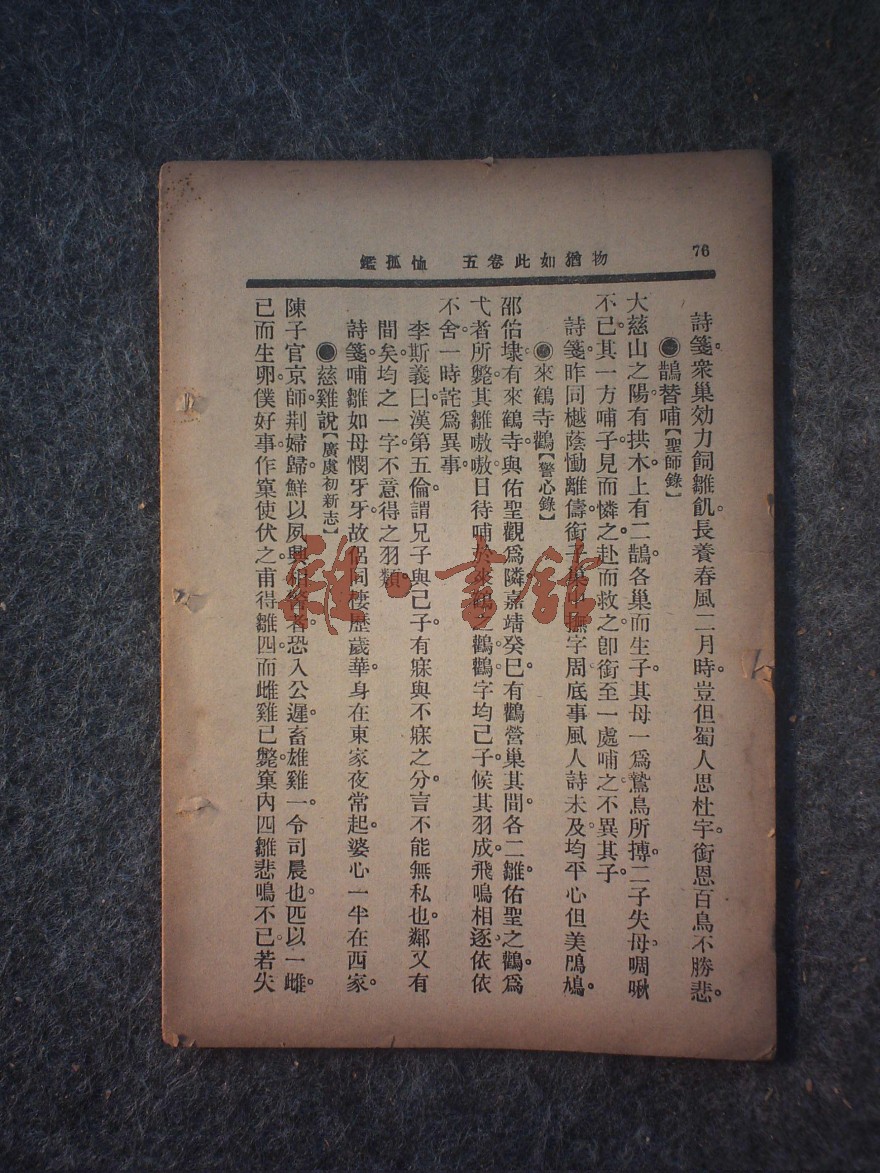 76
物猶如此卷五 恤孤鑑
詩箋。衆巢効力飼雛飢。長養春風二月時。豈但蜀人思杜宇。銜恩百鳥不勝悲。
●鵲替哺【聖師錄】
大慈山之陽。有拱木。上有二鵲。各巢而生子。其母一爲鷙鳥所搏。二子失母。啁啾
不已。其一方哺子。見而憐之。赴而救之。卽銜至一處哺之。不異其子。
詩箋。昨同樾蔭慟離儔。銜子巢中撫字周。底事風人詩未及。均平心但美鳲鳩。
●來鶴寺鸛【警心錄】
邵伯埭。有來鶴寺。與佑聖觀爲隣。嘉靖癸巳。有鸛營巢其間。各二雛。佑聖之鸛。爲
弋者所斃。其雛嗷嗷。日待哺於來鶴之鸛。鸛字均己子。候其羽成。飛鳴相逐。依依
不舍。一時詫爲異事。
李斯義曰。漢第五倫。謂兄子與己子。有寐與不寐之分。言不能無私也。鄰又有
間矣。均之一字。不意得之羽類。
詩箋。哺雛如母憫牙牙。故侶同棲歷歲華。身在東家夜常起。婆心一半在西家。
●慈雞說【廣虞初新志】
陳子官京師。荆婦歸鮮以夙興相警者。恐入公遲。畜雄雞一。令司晨也。匹以一雌。
已而生卵。僕好事。作窠使伏之。甫得雛四。而雌雞已斃。窠內四雛。悲鳴不已。若失
雜·書館